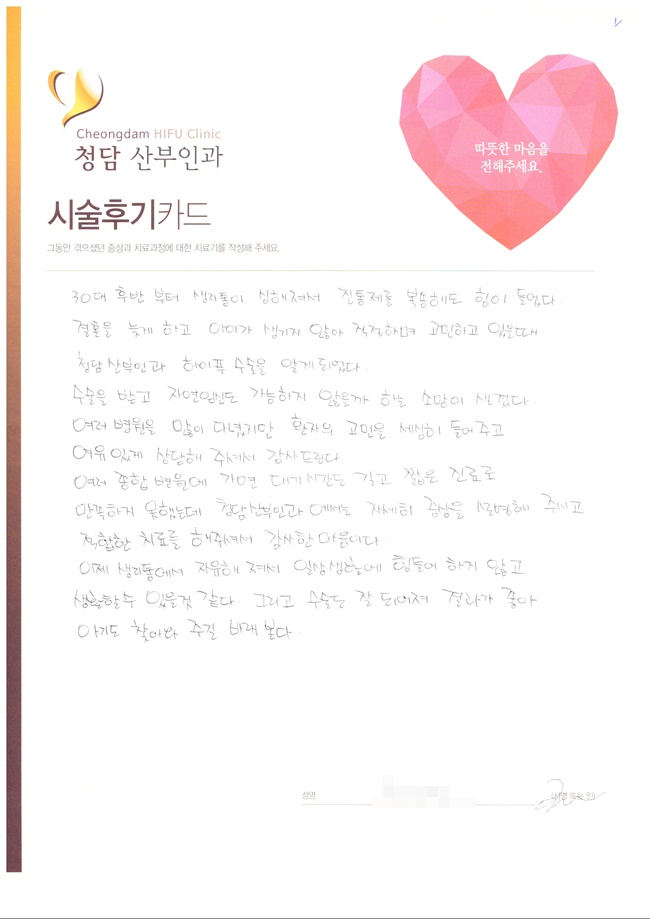 Cheongdam HIFU Clinic
청담 산부인과
따뜻한 마음을
전해주세요.
시술후기카드
그동안 겪으셨던 증상과 치료과정에 대한 치료기를 작성해 주세요.
30대 후반 부터 생리통이 심해져서 진통제를 복용해도 힘이 들었다.
결혼을 늦게 하고 아이가 생기지 않아 걱정하며 고민하고 있을때
청담산부인과 하이푸 수술을 알게 되었다.
수술을 받고 자연임신도 가능하지 않을까 하는 소망이 생겼다.
여러 병원을 많이 다녔지만 환자의 고민을 세심히 들어주고
여유있게 상담해 주셔서 감사드린다.
여러 종합 병원에 가면 대기시간도 길고 짧은 진료로
만족하지 못했는데 청담산부인과 에서는 자세히 증상을 설명해 주시고
적합한 치료를 해주셔서 감사한 마음이다.
이제 생리통에서 자유해 져서 일상생활에 힘들어 하지 않고
생활할수 있을것 같다. 그리고 수술도 잘 되어져 결과가 좋아
아기도 찾아와 주길 바래 본다.
성명